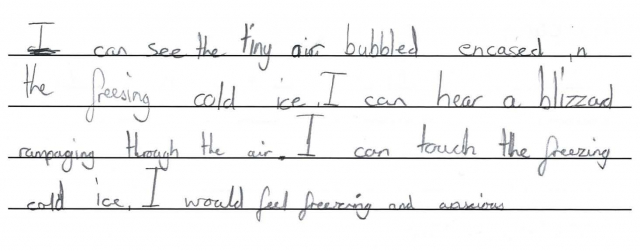 I can see the tiny air bubbled encased in
the freesing cold ice. I can hear a blizzard
rampaging through the air. I can touch the freezing
cold ice. I would feel freezing and anxious